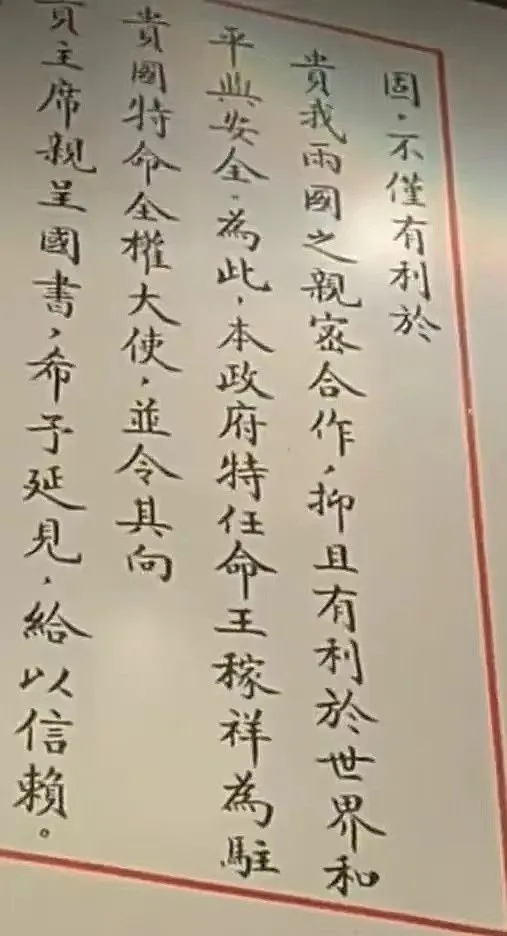 固，不僅有利於
貴我兩國之親密合作，抑且有利於世界和
平與安全。為此，本政府特任命王稼祥為駐
貴國特命全權大使，並令其向
貴主席親呈國書，希予延見，給以信賴。